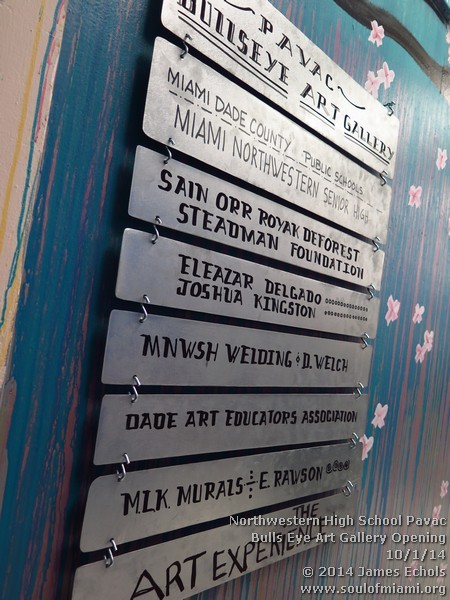 ~PAVAC~
BULLSEYE ART GALLERY
MIAMI DADE COUNTY PUBLIC SCHOOLS
MIAMI NORTHWESTERN SENIOR HIGH
SAIN ORR ROYAK DEFOREST
STEADMAN FOUNDATION
ELEAZAR DELGADO
JOSHUA KINGSTON
MNWSH WELDING & D. WELCH
DADE ART EDUCATORS ASSOCIATION
MLK. MURALS & E. RAWSON
THE
ART EXPERIENCE
Northwestern High School Pavac
Bulls Eye Art Gallery Opening
10/1/14
© 2014 James Echols
www.soulofmiami.org